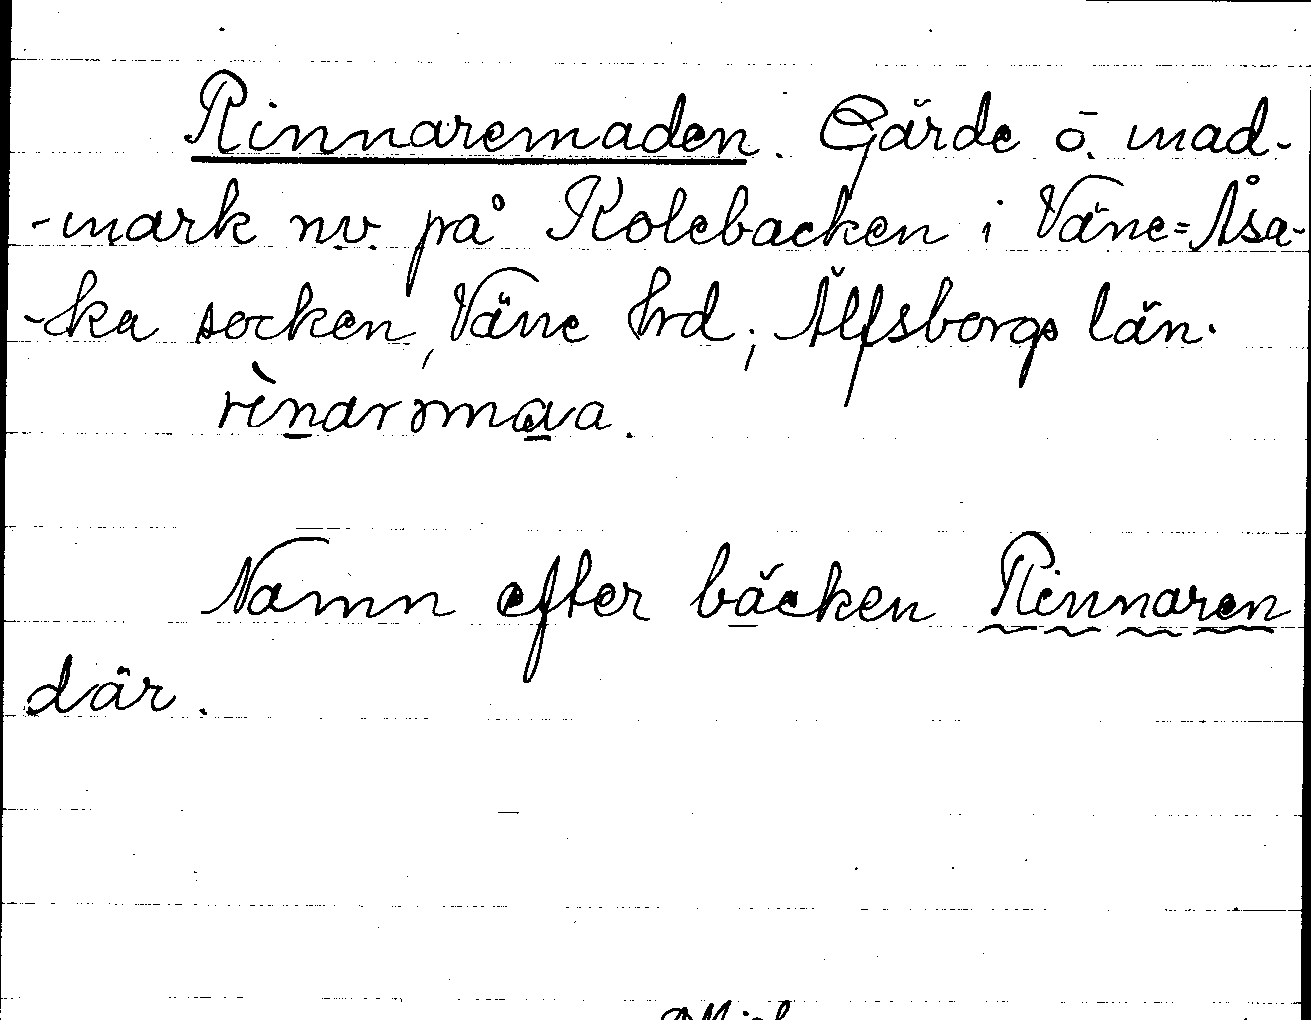 Rinnaremaden. Gärde o. mad-
-mark nv. på Kolebacken i Väne=Åsa-
-ka socken, Väne hrd; Älfsborgs län.
rìnarəmaa.
Namn efter bäcken Rinnaren
där.